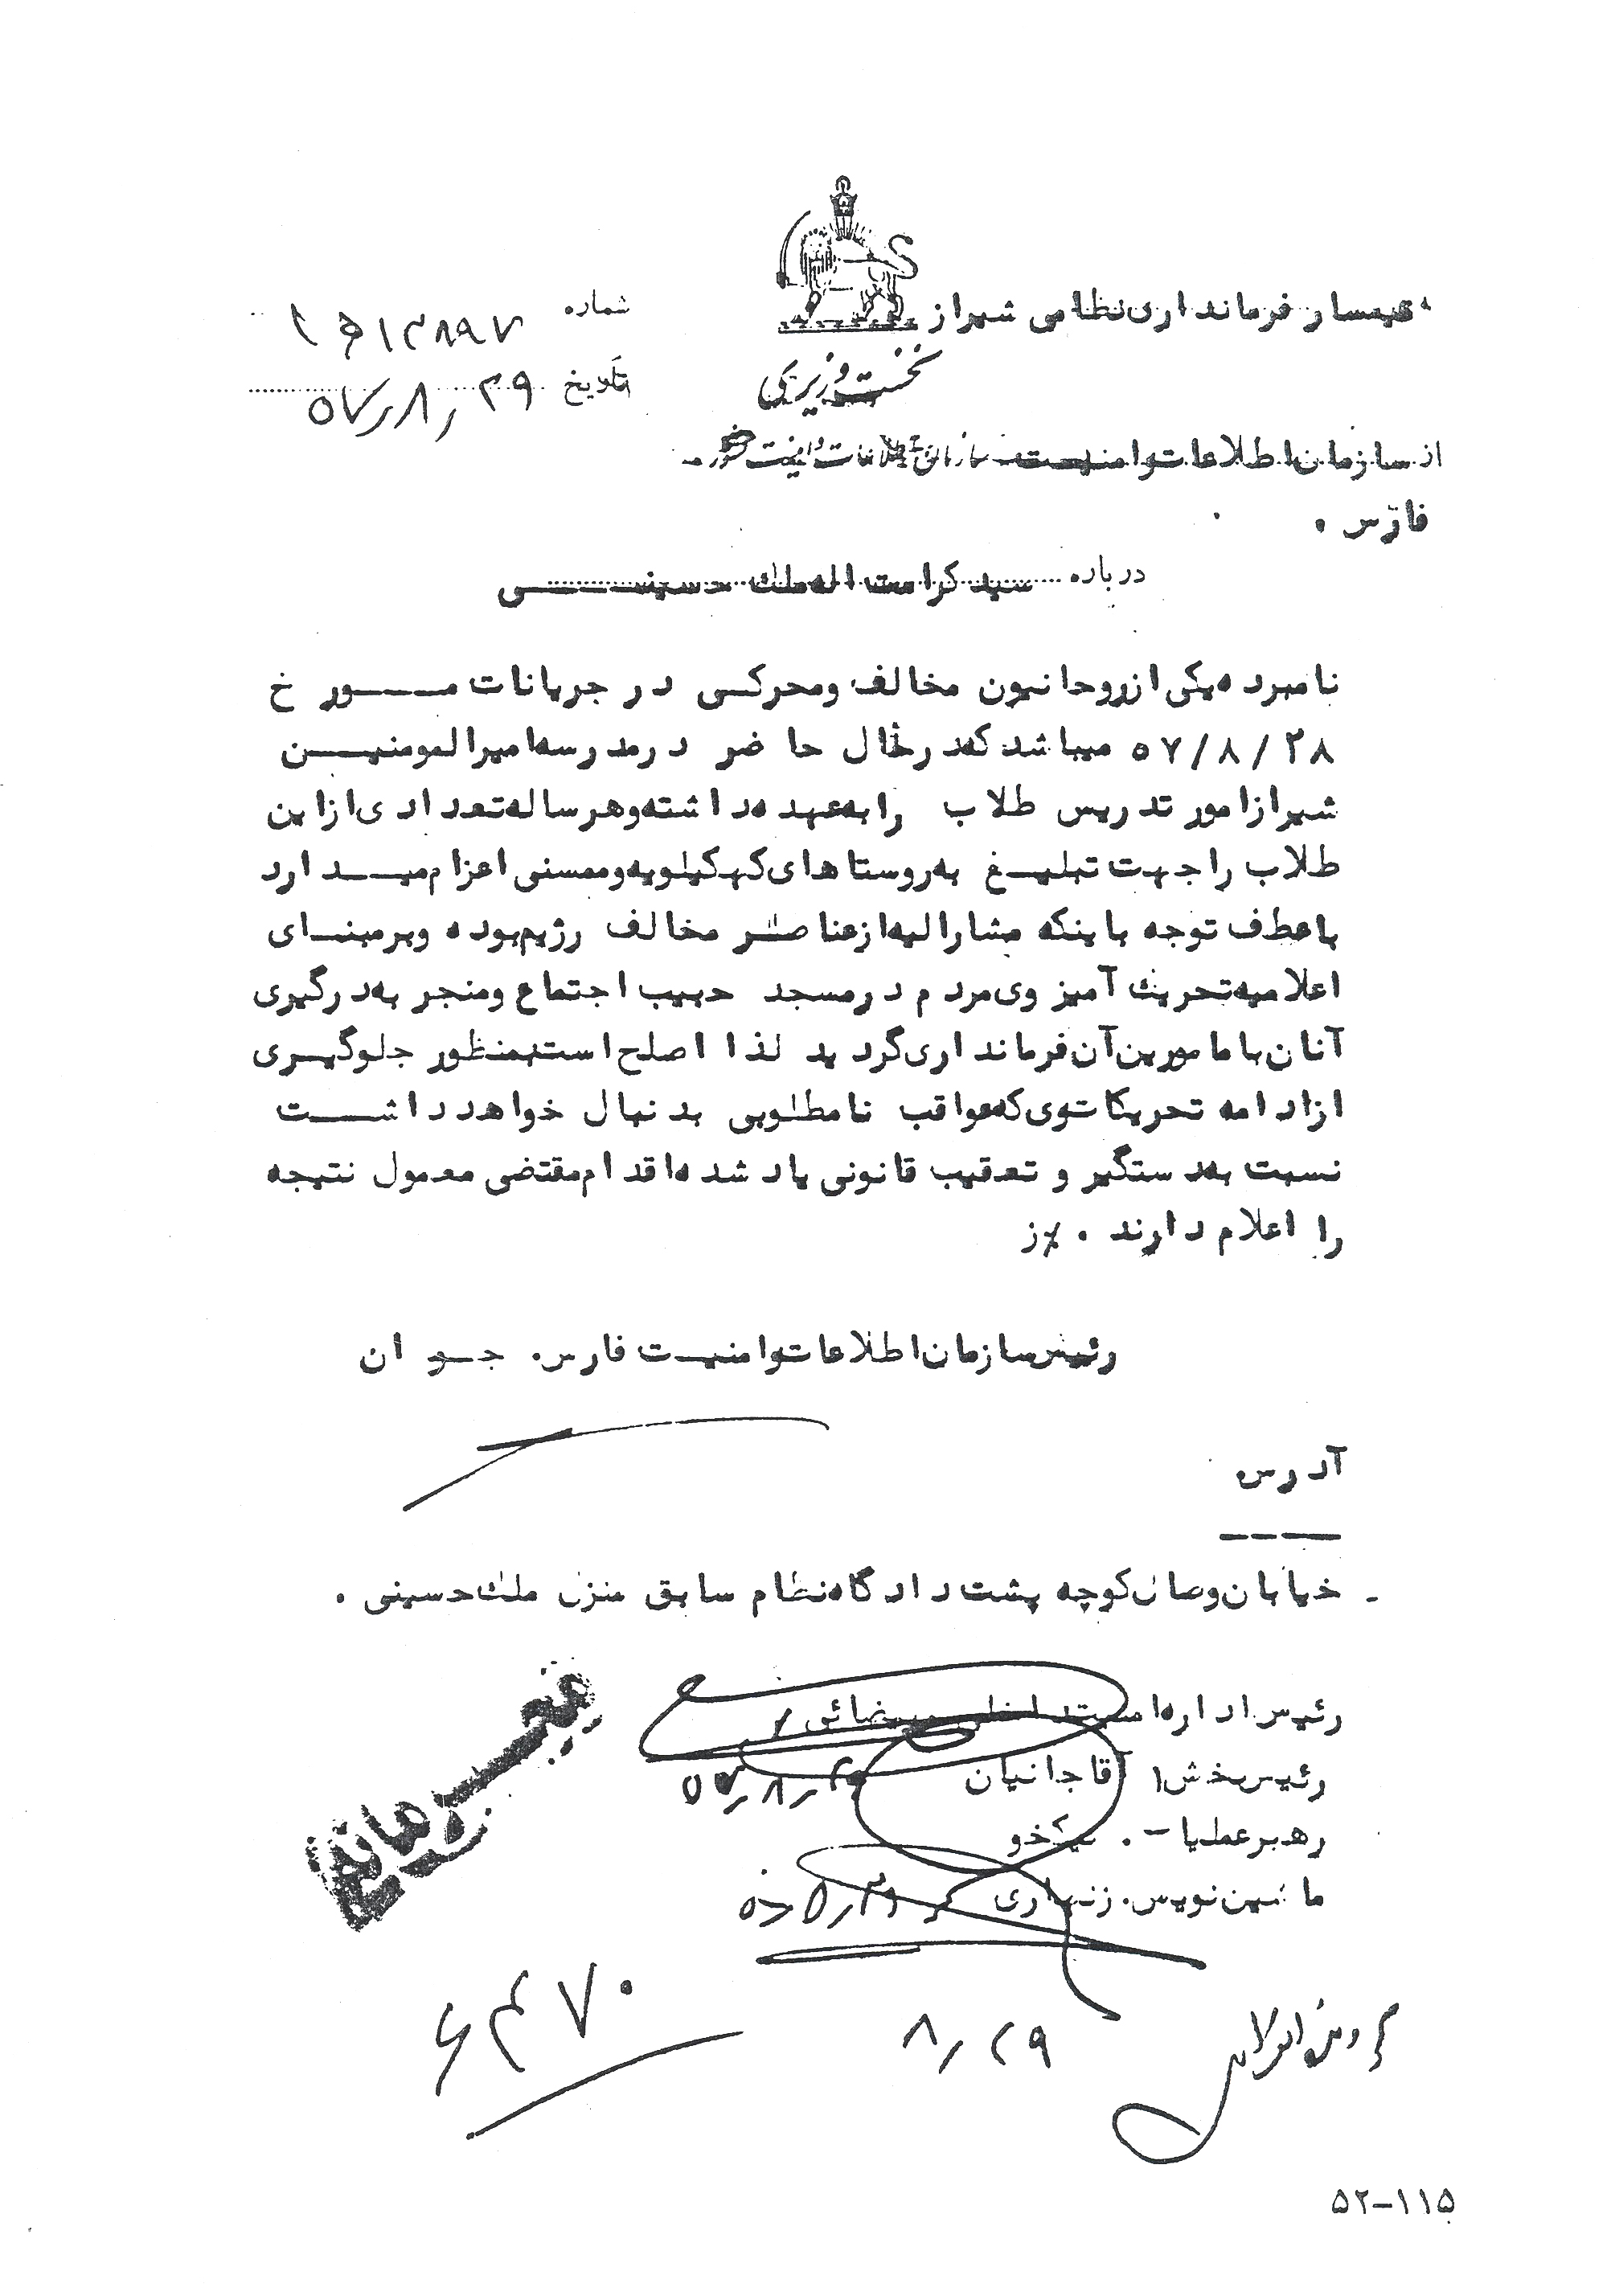 تیمسار فرمانداری نظامی شیراز
نخست وزیری
شماره ۱۳۸۹۷ / ۱ ه‍
تاریخ ۵۷/۸/۲۹
از سازمان اطلاعات و امنیت سازمان اطلاعات و امنیت کشور
فارس .
درباره سید کرامت اله ملک حسینی
نامبرده یکی از روحانیون مخالف و محرکی در جریانات مورخ
۵۷/۸/۲۸ میباشد که در حال حاضر در مدرسه امیرالمومنین
شیراز امور تدریس طلاب را به عهده داشته و هر ساله تعدادی از این
طلاب را جهت تبلیغ به روستاهای کهکیلویه و ممسنی اعزام میدارد
با عطف توجه باینکه مشارالیه از عناصر مخالف رژیم بوده و بر مبنای
اعلامیه تحریک آمیز وی مردم در مسجد حبیب اجتماع و منجر به درگیری
آنان با مامورین آن فرمانداری گردید لذا اصلح است بمنظور جلوگیری
از ادامه تحریکات وی که عواقب نامطلوبی بدنبال خواهد داشت
نسبت به دستگیر و تعقیب قانونی یاد شده اقدام مقتضی معمول نتیجه
را اعلام دارند . /ز
رئیس سازمان اطلاعات و امنیت فارس. جوان
آدرس
----
- خیابان وصال کوچه پشت دادگاه نظام سابق منزل ملک حسینی .
رئیس اداره امنیت داخلی
رئیس بخش ۱ آقاجانیان
۵۷/۸/۲۹
رهبر عملیا - . نیکخو
ماشین نویس. زنهاری
خیلی محرمانه
۸/۲۹
۵۲-۱۱۵